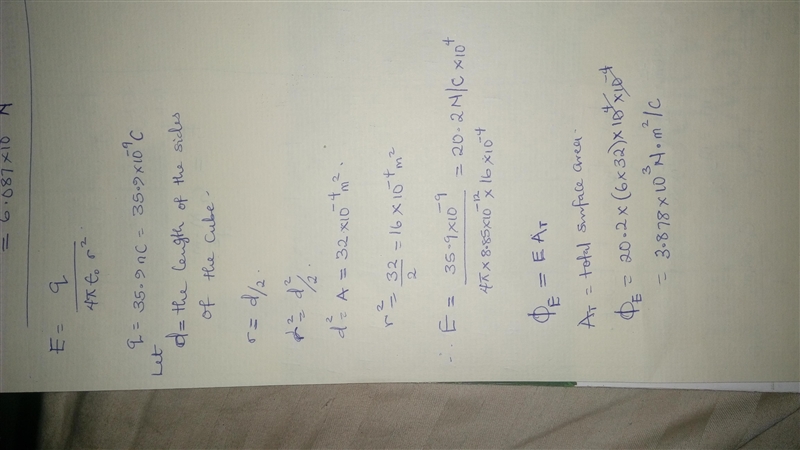 = 6.087×10 N
E = q / 4π ε₀ r² .
q = 35.9 nC = 35.9×10⁻⁹ C
Let
d = the length of the sides
of the cube.
r = d/2 .
r² = d²/2 .
d² = A = 32 ×10⁻⁴ m² .
r² = 32/2 = 16 ×10⁻⁴ m²
∴ E = 35.9×10⁻⁹ / 4π × 8.85×10⁻¹² × 16 ×10⁻⁴ = 20.2 N/C ×10⁴
Φ_E = E A_T
A_T = total surface area.
Φ_E = 20.2 × (6×32) × 10⁴ × 10⁻⁴
= 3.878 ×10³ N.m²/C